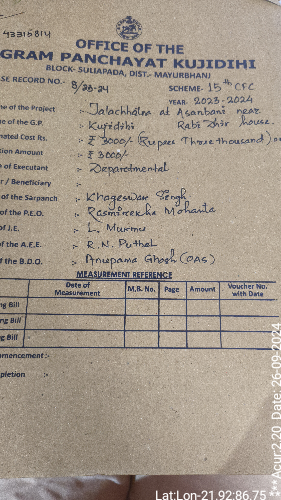 43315814
OFFICE OF THE
GRAM PANCHAYAT KUJIDIHI
BLOCK- SULIAPADA, DIST.- MAYURBHANJ
SE RECORD NO.- 8/23-24 SCHEME- 15th CFC
YEAR- 2023-2024
me of the Project :- Jalachhatra at Asanbani near
Rabi Dhir house.
me of the G.P. :- Kujidihi
mated Cost Rs. :- ₹ 3000/- (Rupees Three thousand) on
tion Amount :- ₹ 3000/-
of Executant :- Departmental
r / Beneficiary :-
of the Sarpanch :- Khageswar Singh
of the P.E.O. :- Rasmirekha Mohanta
of J.E. :- L. Murmu
of the A.E.E. :- R. N. Puthal
of the B.D.O. :- Anupama Ghosh (OAS)
MEASUREMENT REFERENCE
Date of Measurement M.B. No. Page Amount Voucher No. with Date
ng Bill
ng Bill
g Bill
mmencement:-
pletion :-
Lat:Lon-21.92:86.75
***Acur:2.20 Date: 26-09-2024